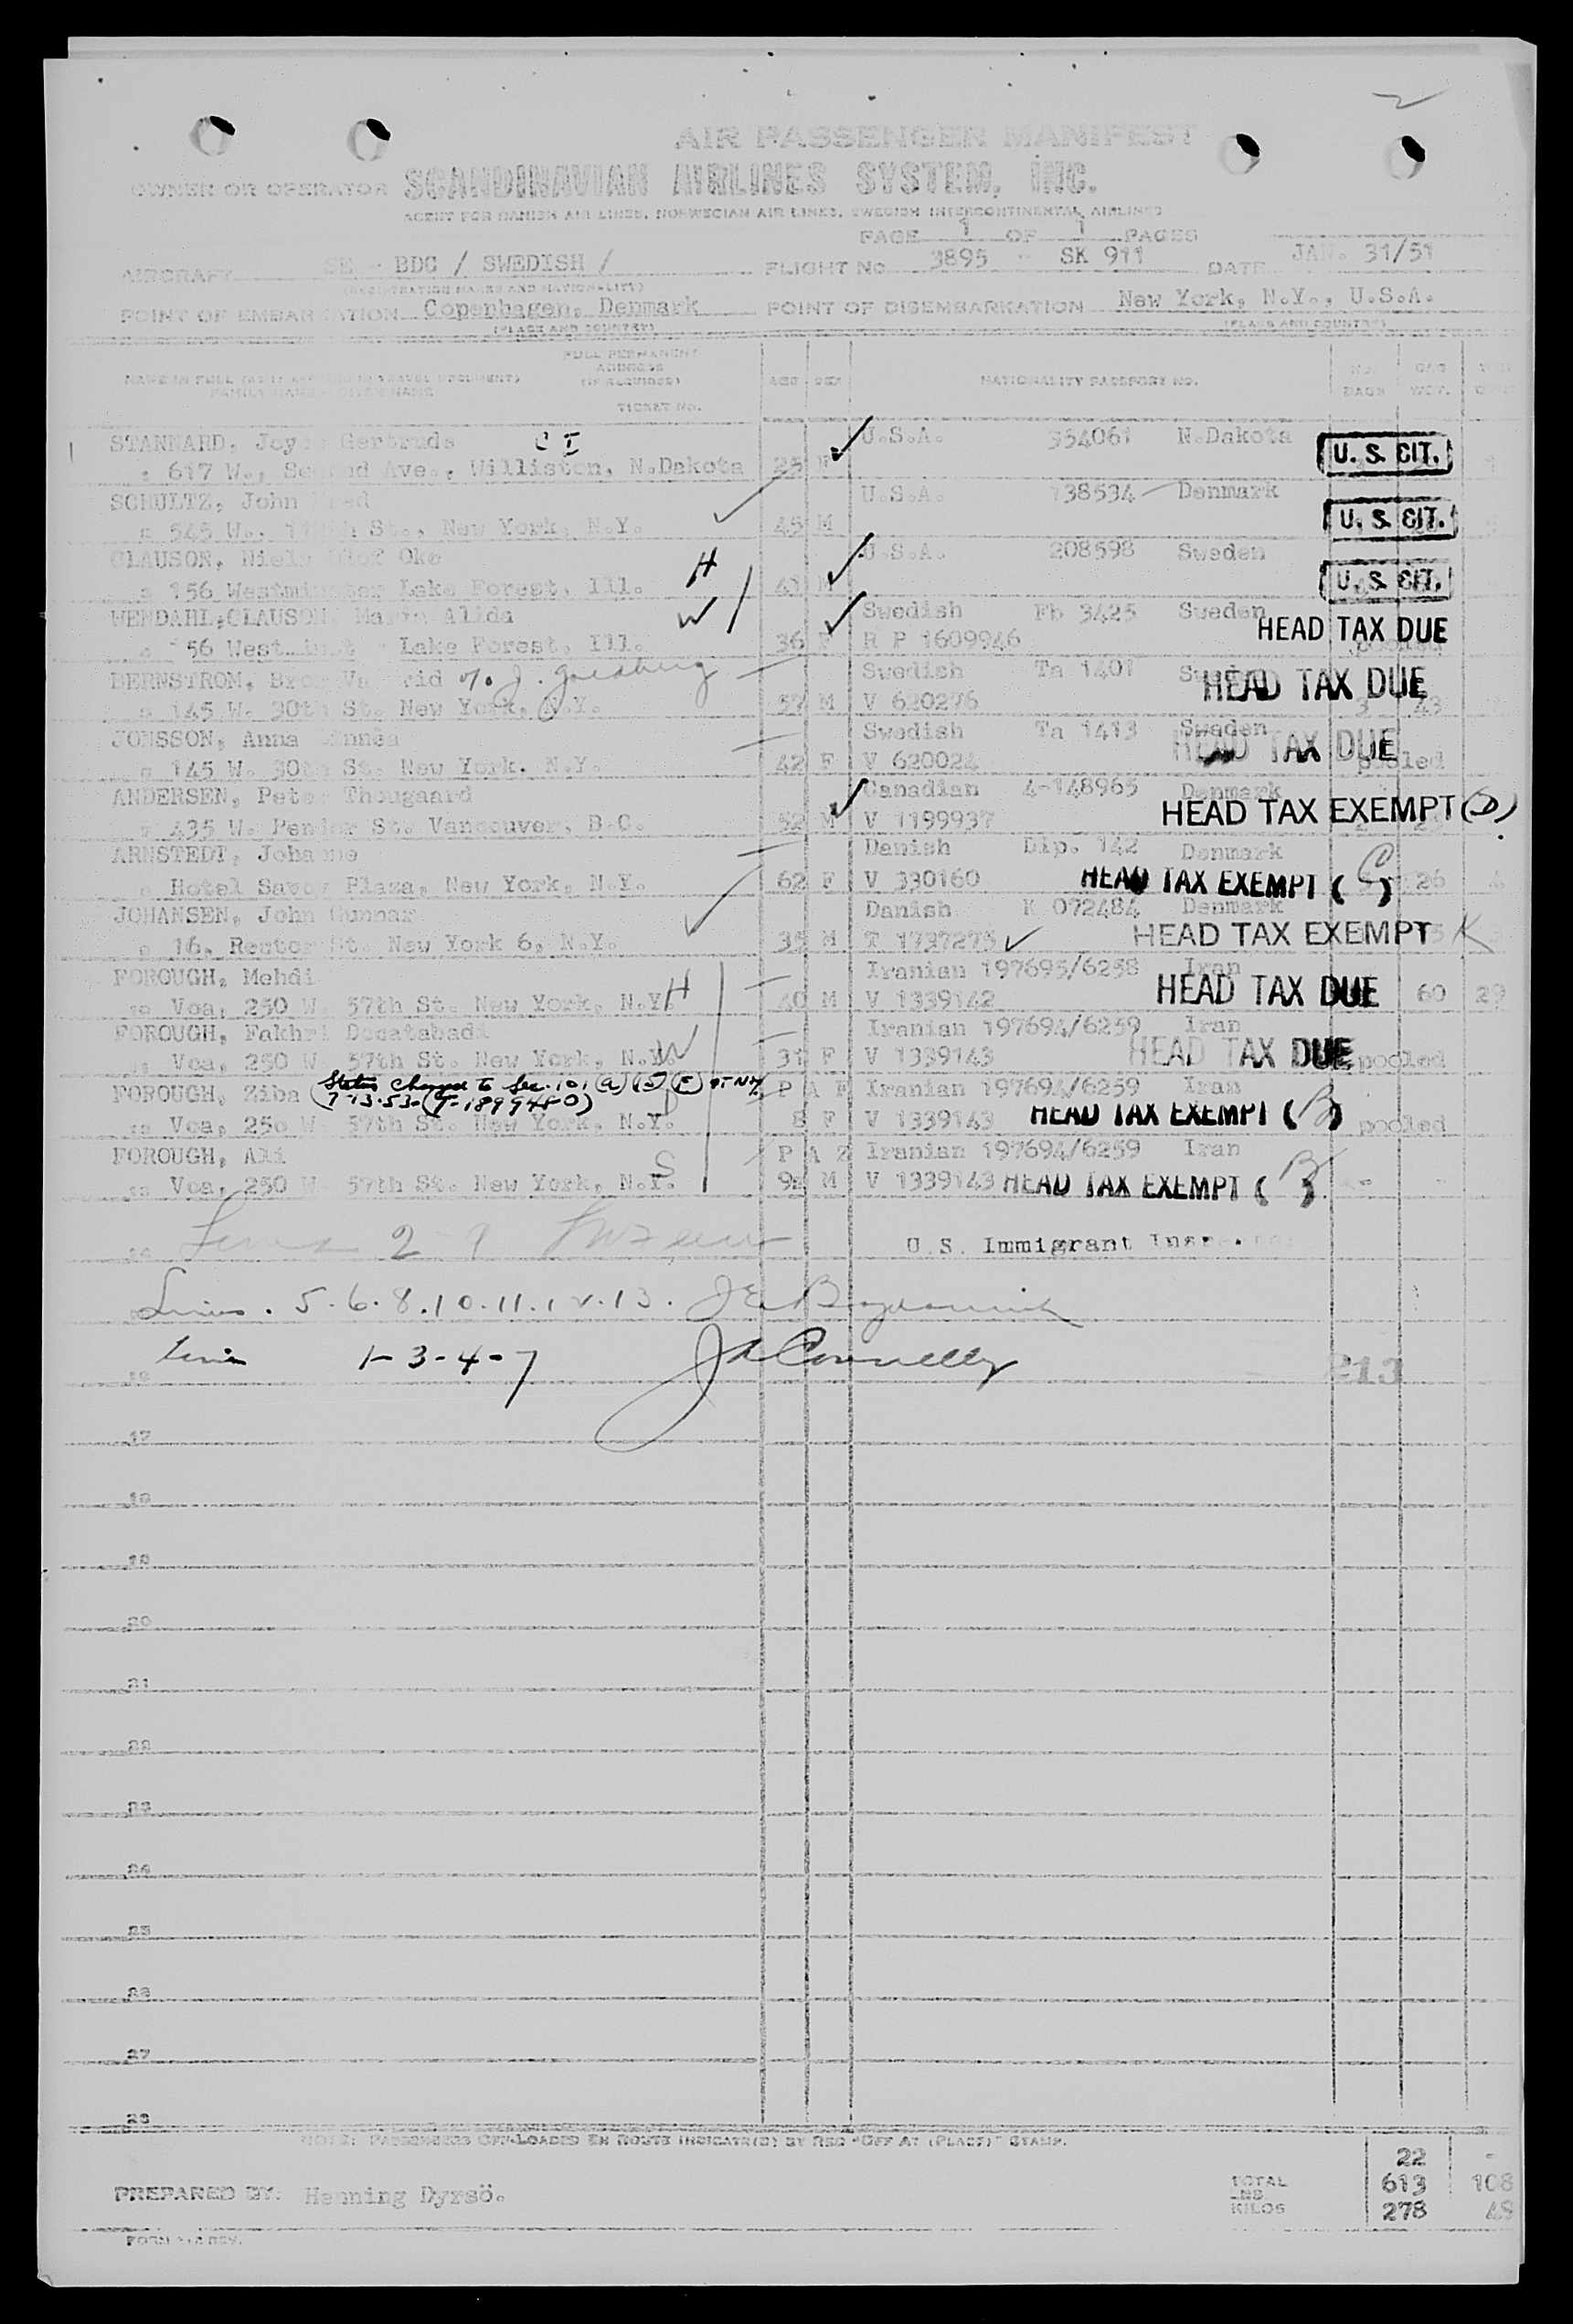 AIR PASSENGER MANIFEST
OWNER OR OPERATOR SCANDINAVIAN AIRLINES SYSTEM, INC.
AGENT FOR DANISH AIR LINES, NORWEGIAN AIR LINES, SWEDISH INTERCONTINENTAL AIRLINES
PAGE 1 OF 1 PAGES
AIRCRAFT SE - BDC / SWEDISH / FLIGHT No 3895 - SK 911 DATE JAN. 31/51
(REGISTRATION MARKS AND NATIONALITY)
POINT OF EMBARKATION Copenhagen, Denmark POINT OF DISEMBARKATION New York, N.Y., U.S.A.
(PLACE AND COUNTRY) (PLACE AND COUNTRY)
FULL PERMANENT
ADDRESS
(IF REQUIRED)
TICKET NO.
AGE SEX NATIONALITY PASSPORT NO.
STANNARD, Joy Gertrude C I U.S.A. 354061 N.Dakota
617 W., Second Ave., Williston, N.Dakota 25 F U. S. CIT.
SCHULTZ, John U.S.A. 38534 Denmark
545 W., St., New York, N.Y. 45 M U. S. CIT.
CLAUSON, Niels Olof Oke U.S.A. 208598 Sweden
156 Westminster Lake Forest, Ill. H 41 M U. S. CIT.
WENDAHL,CLAUSON, Alida W Swedish Fb 3425 Sweden HEAD TAX DUE
156 West Lake Forest, Ill. 36 F R P 1609946 pooled
BERNSTROM, c/o J. Goedberg Swedish Ta 1401 Sweden HEAD TAX DUE
145 W. 30th St. New York, N.Y. 57 M V 620276 3 43
JONSSON, Anna Linnea Swedish Ta 1413 Sweden HEAD TAX DUE
145 W. 30th St. New York. N.Y. 42 F V 620024 pooled
ANDERSEN, Peter Thougaard Canadian 4-148965 Denmark HEAD TAX EXEMPT (D)
435 W. Pender St. Vancouver, B.C. 52 M V 1199937
ARNSTEDT, Johanne Danish Dip. 142 Denmark
Hotel Savoy Plaza, New York, N.Y. 62 F V 330160 HEAD TAX EXEMPT ( C ) 26
JOHANSEN, John Gunnar Danish K 072484 Denmark
16, Rector St. New York 6, N.Y. 35 M T 1737275 HEAD TAX EXEMPT K
FOROUGH, Mehdi Iranian 197695/6258 Iran HEAD TAX DUE
Voa, 250 W. 57th St. New York, N.Y. H 40 M V 1339142 60 29
FOROUGH, Fakhri Docatabadi Iranian 197694/6259 Iran HEAD TAX DUE
Voa, 250 W. 57th St. New York, N.Y. W 31 F V 1339143 pooled
FOROUGH, Ziba (Status Changed to Sec. 101 (a) (15) (F) at NY P A F Iranian 197694/6259 Iran
7-13-53-(T-1899480)
Voa, 250 W. 57th St. New York, N.Y. D 8 F V 1339143 HEAD TAX EXEMPT ( B ) pooled
FOROUGH, Ali S P A Z Iranian 197694/6259 Iran
Voa, 250 W. 57th St. New York, N.Y. 9 M V 1339143 HEAD TAX EXEMPT ( B ) - -
Lines 2 9 U.S. Immigrant Inspector
Lines. 5.6.8.10.11.12.13.
Lines 1-3-4-7 Connelly
213
17
18
19
20
21
22
23
24
25
26
27
28
NOTE: PASSENGERS OFF-LOADED EN ROUTE INDICATE(D) BY RED "OFF AT (PLACE)" STAMP.
22 -
TOTAL LBS 613 108
KILOS 278 48
PREPARED BY: Henning Dyrsö.